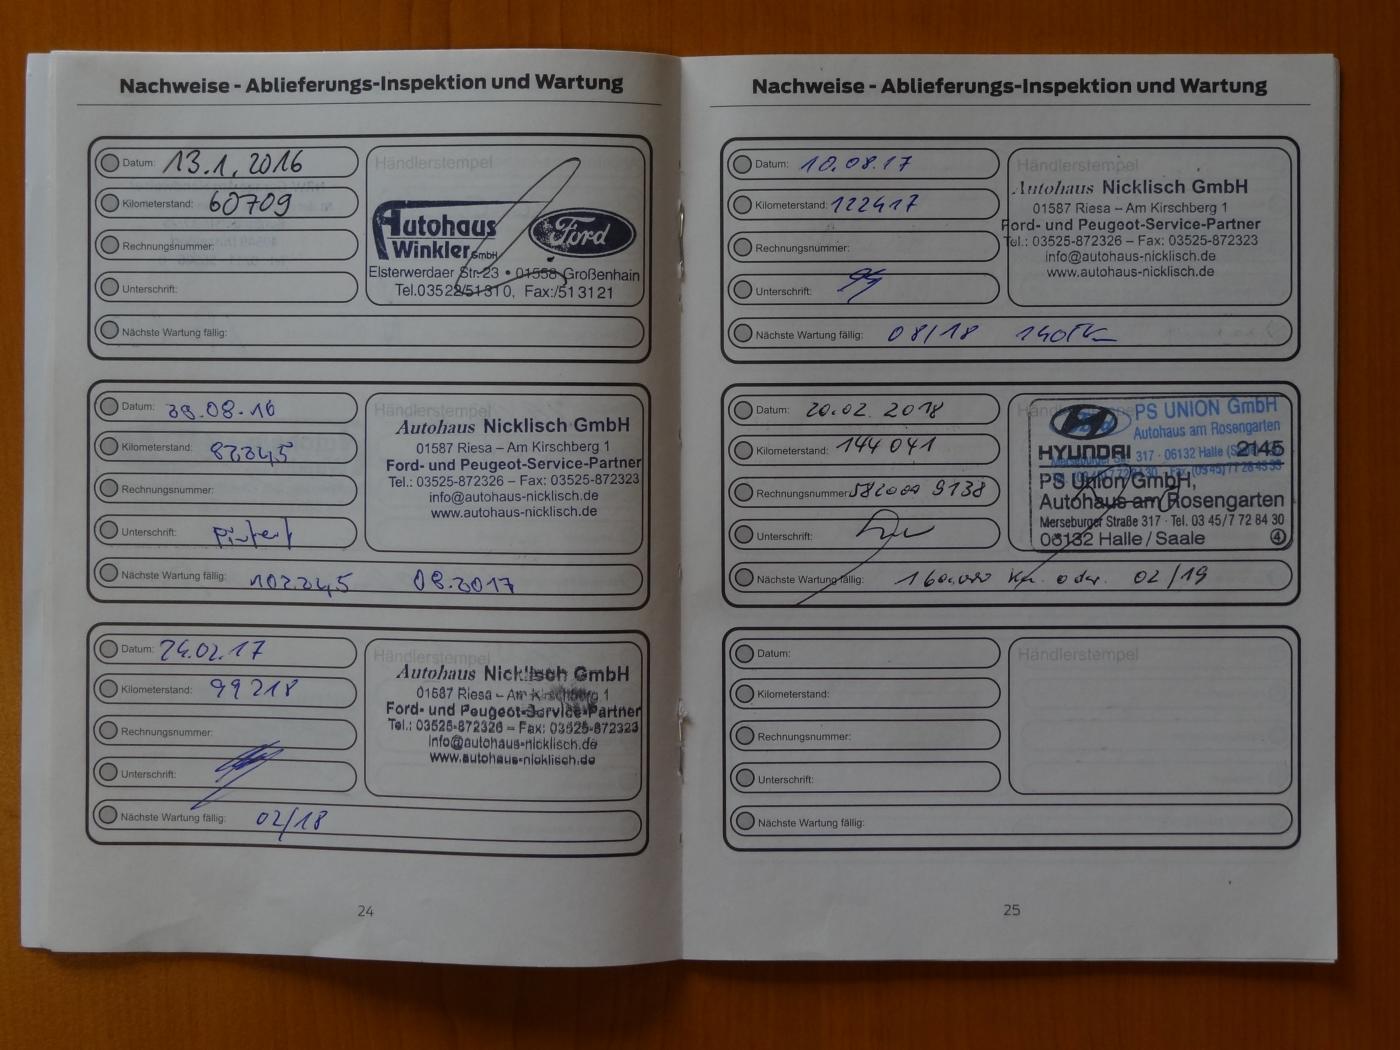 Nachweise - Ablieferungs-Inspektion und Wartung
Datum: 13.1.2016
Kilometerstand: 60709
Rechnungsnummer:
Unterschrift:
Nächste Wartung fällig:
Händlerstempel
Autohaus
Winkler GmbH
Ford
Elsterwerdaer Str. 23 • 01558 Großenhain
Tel.03522/51310, Fax:/513121
Datum: 08.16
Kilometerstand: 82245
Rechnungsnummer:
Unterschrift:
Nächste Wartung fällig: 102245 08.2017
Händlerstempel
Autohaus Nicklisch GmbH
01587 Riesa – Am Kirschberg 1
Ford- und Peugeot-Service-Partner
Tel.: 03525-872326 – Fax: 03525-872323
info@autohaus-nicklisch.de
www.autohaus-nicklisch.de
Datum: 24.02.17
Kilometerstand: 99218
Rechnungsnummer:
Unterschrift:
Nächste Wartung fällig: 02/18
Händlerstempel
Autohaus Nicklisch GmbH
01587 Riesa – Am Kirschberg 1
Ford- und Peugeot-Service-Partner
Tel.: 03525-872326 – Fax: 03525-872323
info@autohaus-nicklisch.de
www.autohaus-nicklisch.de
24
Nachweise - Ablieferungs-Inspektion und Wartung
Datum: 10.08.17
Kilometerstand: 122417
Rechnungsnummer:
Unterschrift:
Nächste Wartung fällig: 08/18 140TKm
Händlerstempel
Autohaus Nicklisch GmbH
01587 Riesa – Am Kirschberg 1
Ford- und Peugeot-Service-Partner
Tel.: 03525-872326 – Fax: 03525-872323
info@autohaus-nicklisch.de
www.autohaus-nicklisch.de
Datum: 20.02.2018
Kilometerstand: 144041
Rechnungsnummer: 9138
Unterschrift:
Nächste Wartung fällig: 160.000 km oder 02/19
PS UNION GmbH
Autohaus am Rosengarten
317 · 06132 Halle
HYUNDAI 2145
PS Union GmbH,
Autohaus am Rosengarten
Merseburger Straße 317 · Tel. 03 45/7 72 84 30
06132 Halle / Saale 4
Datum:
Kilometerstand:
Rechnungsnummer:
Unterschrift:
Nächste Wartung fällig:
Händlerstempel
25